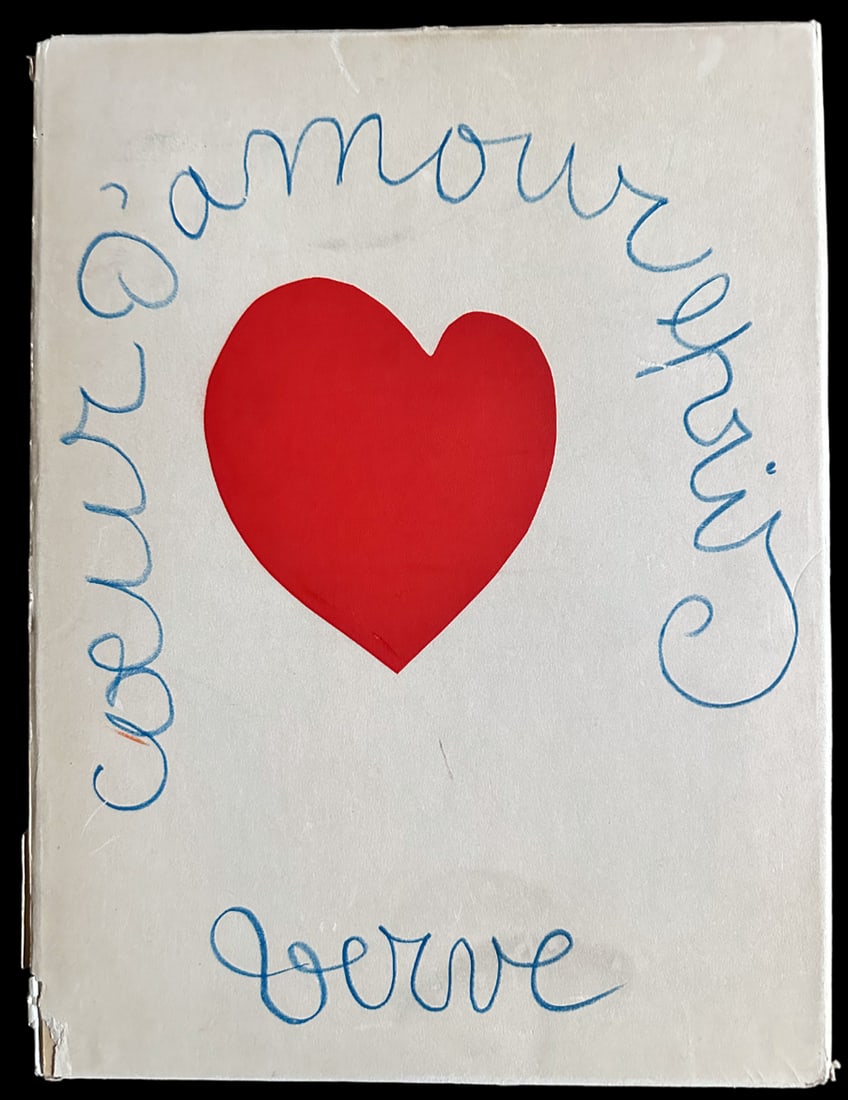 coeur d'amour epris
verve